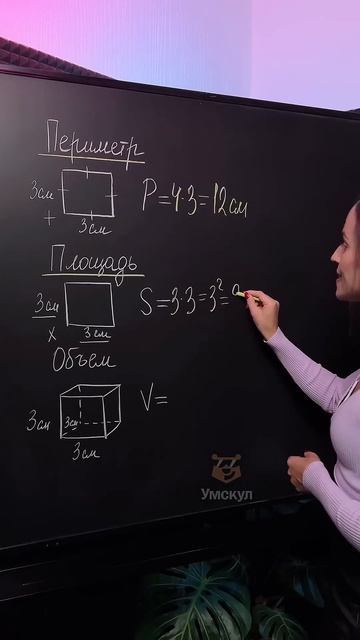 Периметр
3см
+
3см
P=4·3=12см
Площадь
3см
x
3см
S=3·3=3²=
Объем
3см
3см
3см
V=
Умскул